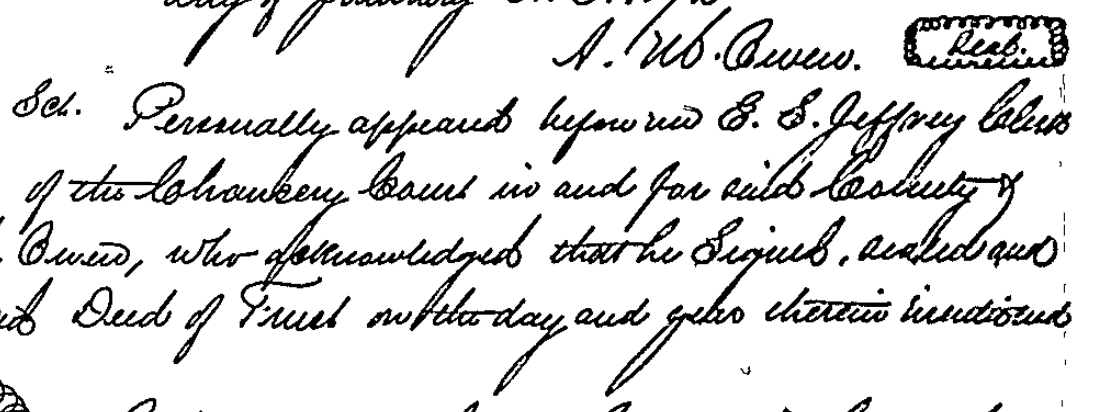 day of
A. W. Owen. Seal.
Sct. Personally appeared before me E. S. Jeffrey Clerk
of the Chancery Court in and for said County &
Owen, who acknowledged that he Signed, sealed and
Deed of Trust on the day and year therein mentioned